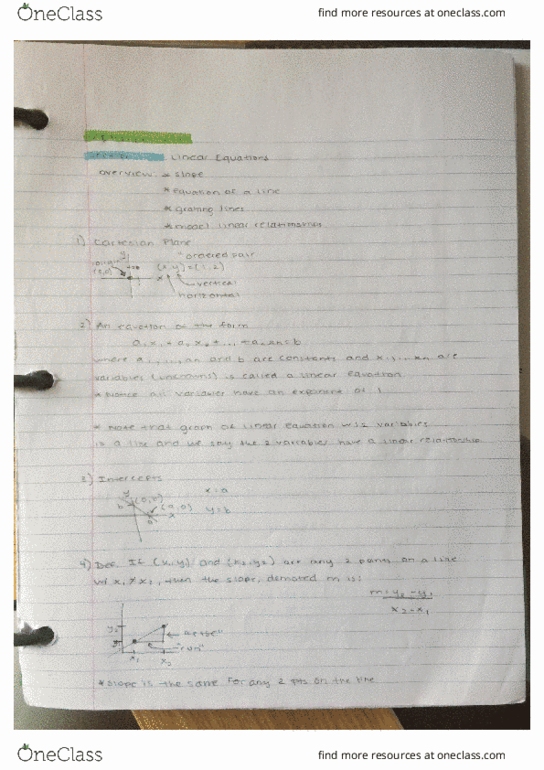 OneClass
find more resources at oneclass.com
Linear Equations
overview: * slope
* equation of a line
* graphing lines
* model linear relationships
1) Cartesian Plane
y
"ordered pair"
origin
(0,0)
x
(x,y) = (1,2)
vertical
horizontal
2) An equation of the form
a, x, + a, x2 + ... + an xn = b
where a,,...,an and b are constants and x,,... xn are
variables (unknowns) is called a linear equation
* Notice all variables have an exponent of 1
* Note that graph of linear equation w/ 2 variables
is a line and we say the 2 variables have a linear relationship
3) Intercepts
y
b
x
a
(a,0)
x=a
y=b
4) Def. If (x,,y,) and (x2,y2) are any 2 points on a line
w/ x, ≠ x2, then the slope, denoted m is:
m = y2 - y1
x2 - x1
y2
"rise"
y1
"run"
x1
x2
* slope is the same for any 2 pts on the line
OneClass
find more resources at oneclass.com